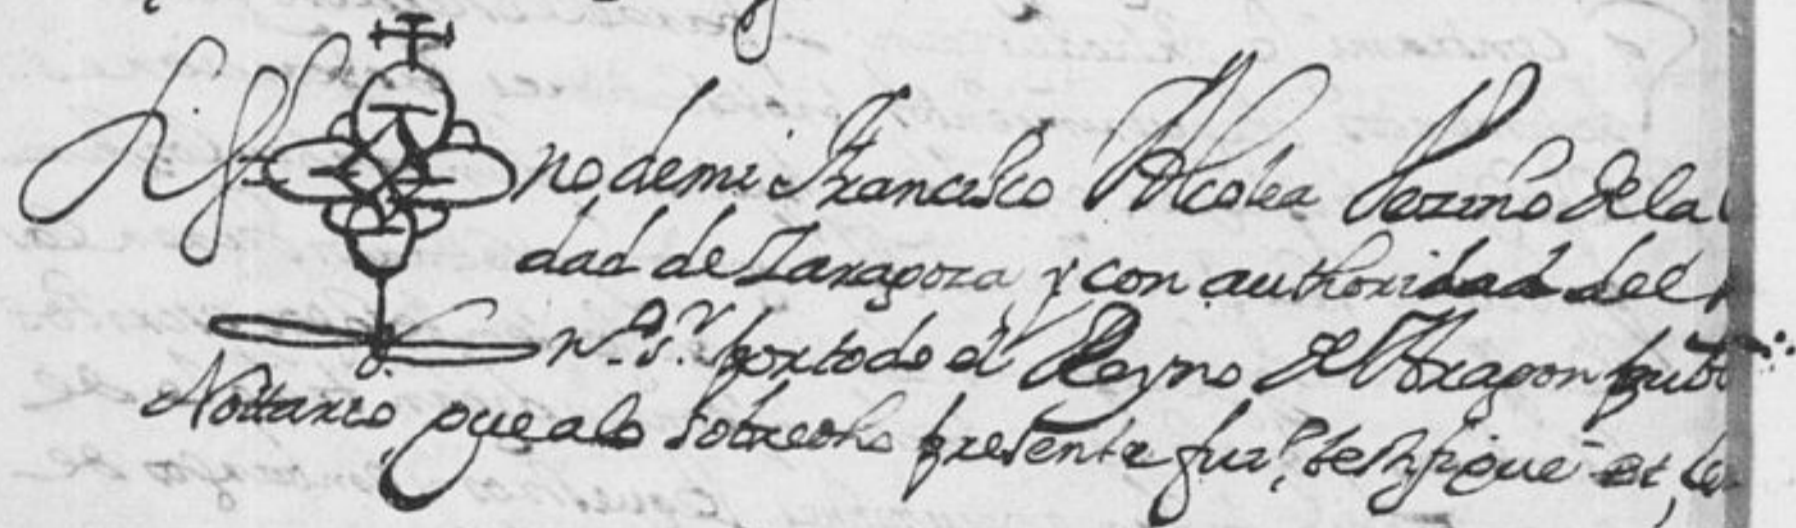 Sig no de mi Francisco Alcolea Vezino de la
dad de Zaragoza y con authoridad del
n.º s.r por todo el Reyno de Aragon pub
Nottario que a lo sobredho presente fui, testifique et